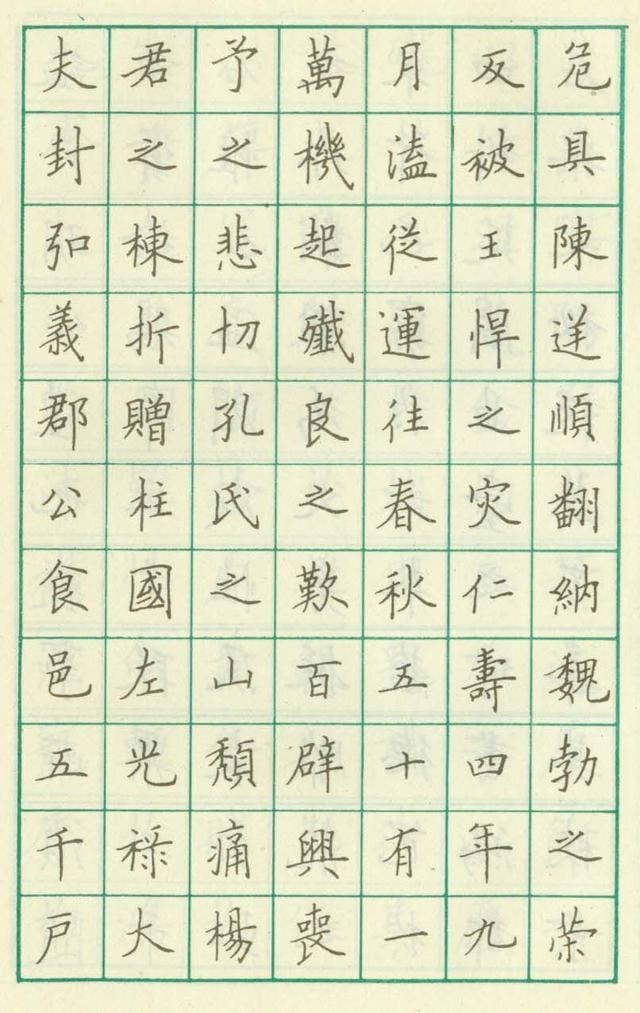 危具陳逆順翻納魏勃之榮
反被王悍之灾仁壽四年九
月溘從運往春秋五十有一
萬機起殲良之歎百辟興喪
予之悲切孔氏之山頹痛楊
君之棟折贈柱國左光祿大
夫封弘義郡公食邑五千戶